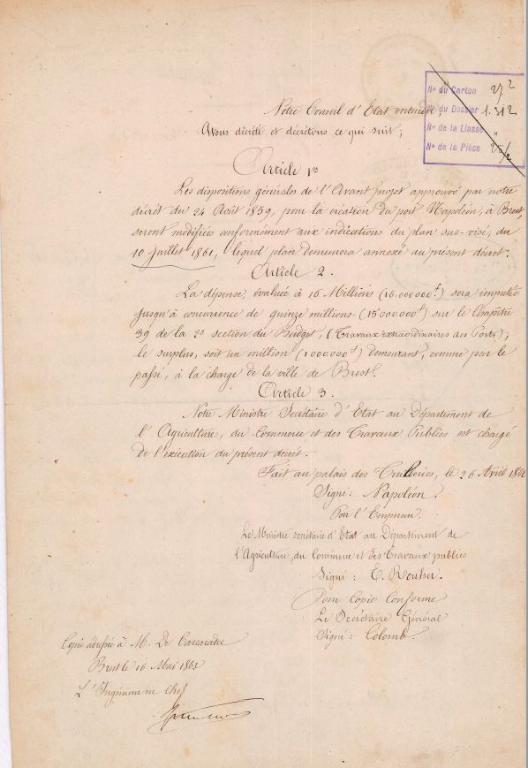 Nº du Carton 27²
Nº du Dossier 1.312
Nº de la Liasse "
Nº de la Pièce 25/2
Notre Conseil d'Etat entendu
Avons décrété et décrétons ce qui suit;
Article 1er
Les dispositions générales de l'Avant projet approuvé par notre
décret du 24 Août 1859, pour la création du port Napoléon, à Brest
seront modifiées conformément aux indications du plan sus-visé, du
10 Juillet 1861, lequel plan demeurera annexé au présent décret.
Article 2.
La dépense, évaluée à 16 Millions (16.000000f) sera imputée
jusqu'à concurrence de quinze millions (15000000f) sur le chapitre
39 de la 2e section du Budget, (Travaux extraordinaires des Ports);
le surplus, soit un million (1000000f) demeurant, comme par le
passé, à la charge de la ville de Brest.
Article 3.
Notre Ministre Secrétaire d'Etat au Département de
l'Agriculture, du Commerce et des Travaux Publics est chargé
de l'exécution du présent décret.
Fait au palais des Tuileries, le 26 Avril
Signé: Napoléon.
Par l'Empereur.
Le Ministre secrétaire d'Etat au Département de
l'Agriculture, du Commerce et des Travaux publics
Signé: E. Rouher.
Pour Copie Conforme
Le Secrétaire Général
Signé: Colomb.
Copie adressée à M. De Carcaradec
Brest le 16 Mai
L'Ingénieur en Chef